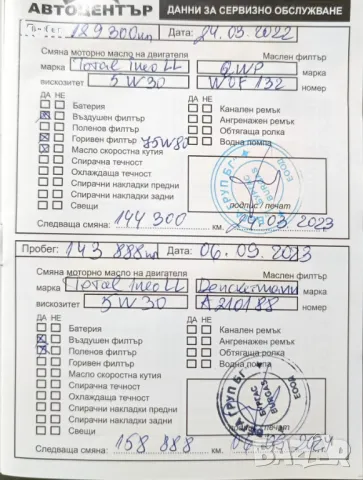 АВТОЦЕНТЪР ДАННИ ЗА СЕРВИЗНО ОБСЛУЖВАНЕ
129300 Дата: 24.03.2022
Смяна моторно масло на двигателя Маслен филтър
марка Total ineo LL QWP марка
вискозитет 5W30 WOF 132 номер
ДА НЕ ДА НЕ
Батерия Канален ремък
Въздушен филтър Ангренажен ремък
Поленов филтър Обтягаща ролка
Горивен филтър 75W80 Водна помпа
Масло скоростна кутия
Спирачна течност
Охлаждаща течност
Спирачни накладки предни
Спирачни накладки задни
Свещи подпис / печат
Следваща смяна: 144 300 км. 24.03.2023
Пробег: 143 888 Дата: 06.09.2023
Смяна моторно масло на двигателя Маслен филтър
марка Total ineo LL Denckermann марка
вискозитет 5W30 A210188 номер
ДА НЕ ДА НЕ
Батерия Канален ремък
Въздушен филтър Ангренажен ремък
Поленов филтър Обтягаща ролка
Горивен филтър Водна помпа
Масло скоростна кутия
Спирачна течност
Охлаждаща течност
Спирачни накладки предни
Спирачни накладки задни
Свещи
Следваща смяна: 158 888 км.